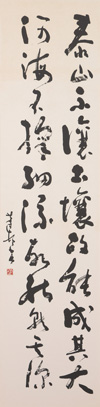 泰山不讓土壤故能成其大
河海不擇細流故能就其深